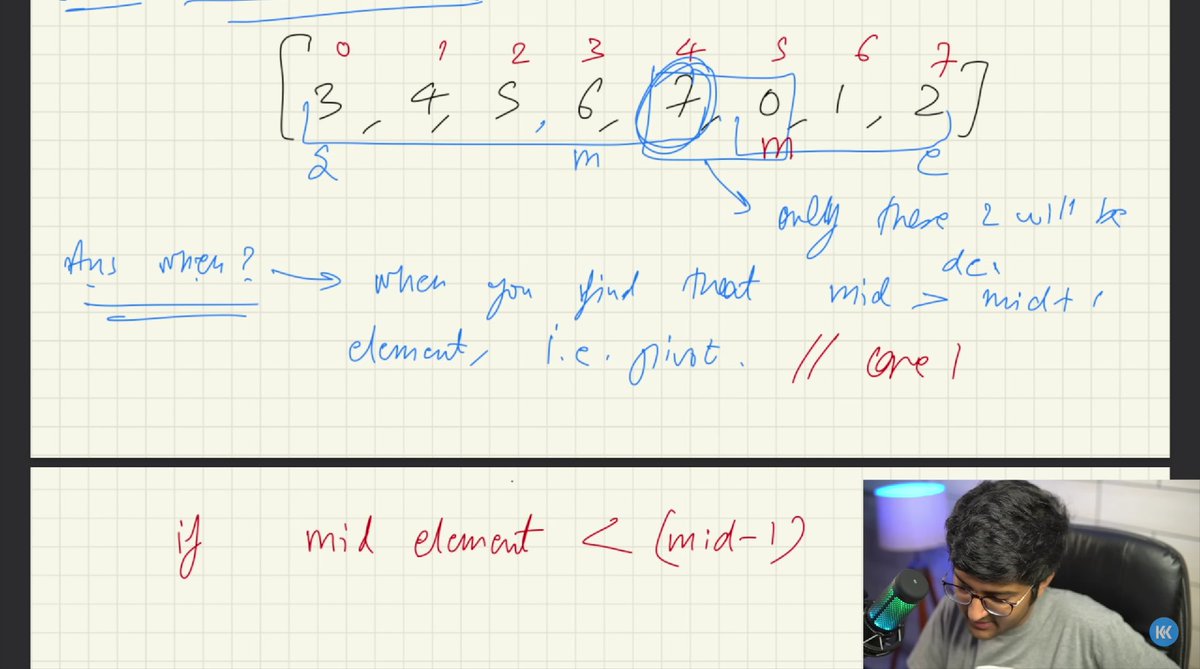 0 1 2 3 4 5 6 7
[3, 4, 5, 6, 7, 0, 1, 2]
S m m e
only these 2 will be
Ans when? → when you find that mid > mid+1
element, i.e. pivot. // case 1
if mid element < (mid-1)
KK